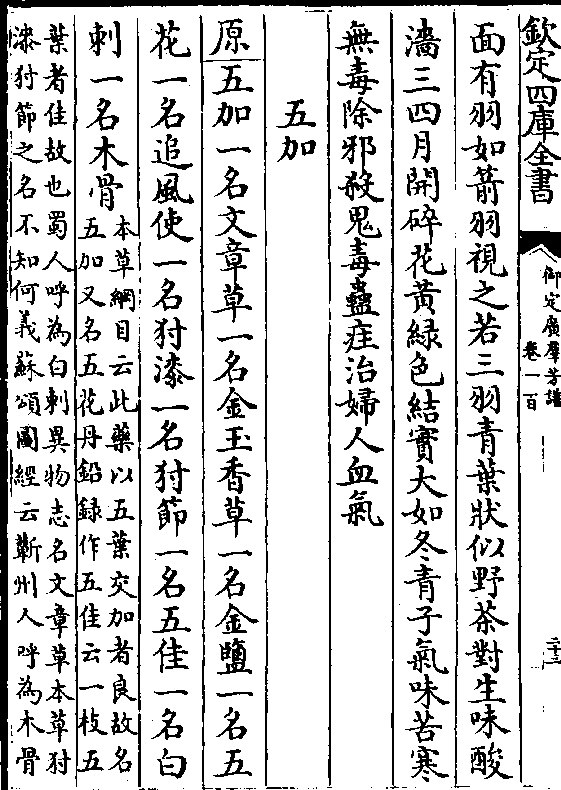 欽定四庫全書
御定廣羣芳譜
卷一百
二十三
面有羽如箭羽視之若三羽青葉狀似野茶對生味酸
濇三四月開碎花黃綠色結實大如冬青子氣味苦寒
無毒除邪殺鬼毒蠱疰治婦人血氣
五加
原五加一名文章草一名金玉香草一名金鹽一名五
花一名追風使一名犲漆一名犲節一名五佳一名白
刺一名木骨
本草綱目云此藥以五葉交加者良故名
五加又名五花丹鉛録作五佳云一枝五
葉者佳故也蜀人呼為白刺異物志名文章草本草犲
漆犲節之名不知何義蘇頌圖經云蘄州人呼為木骨